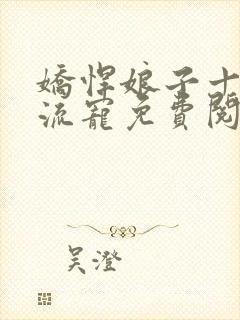 嬌悍娘子十
流寵免費閱
吴澄